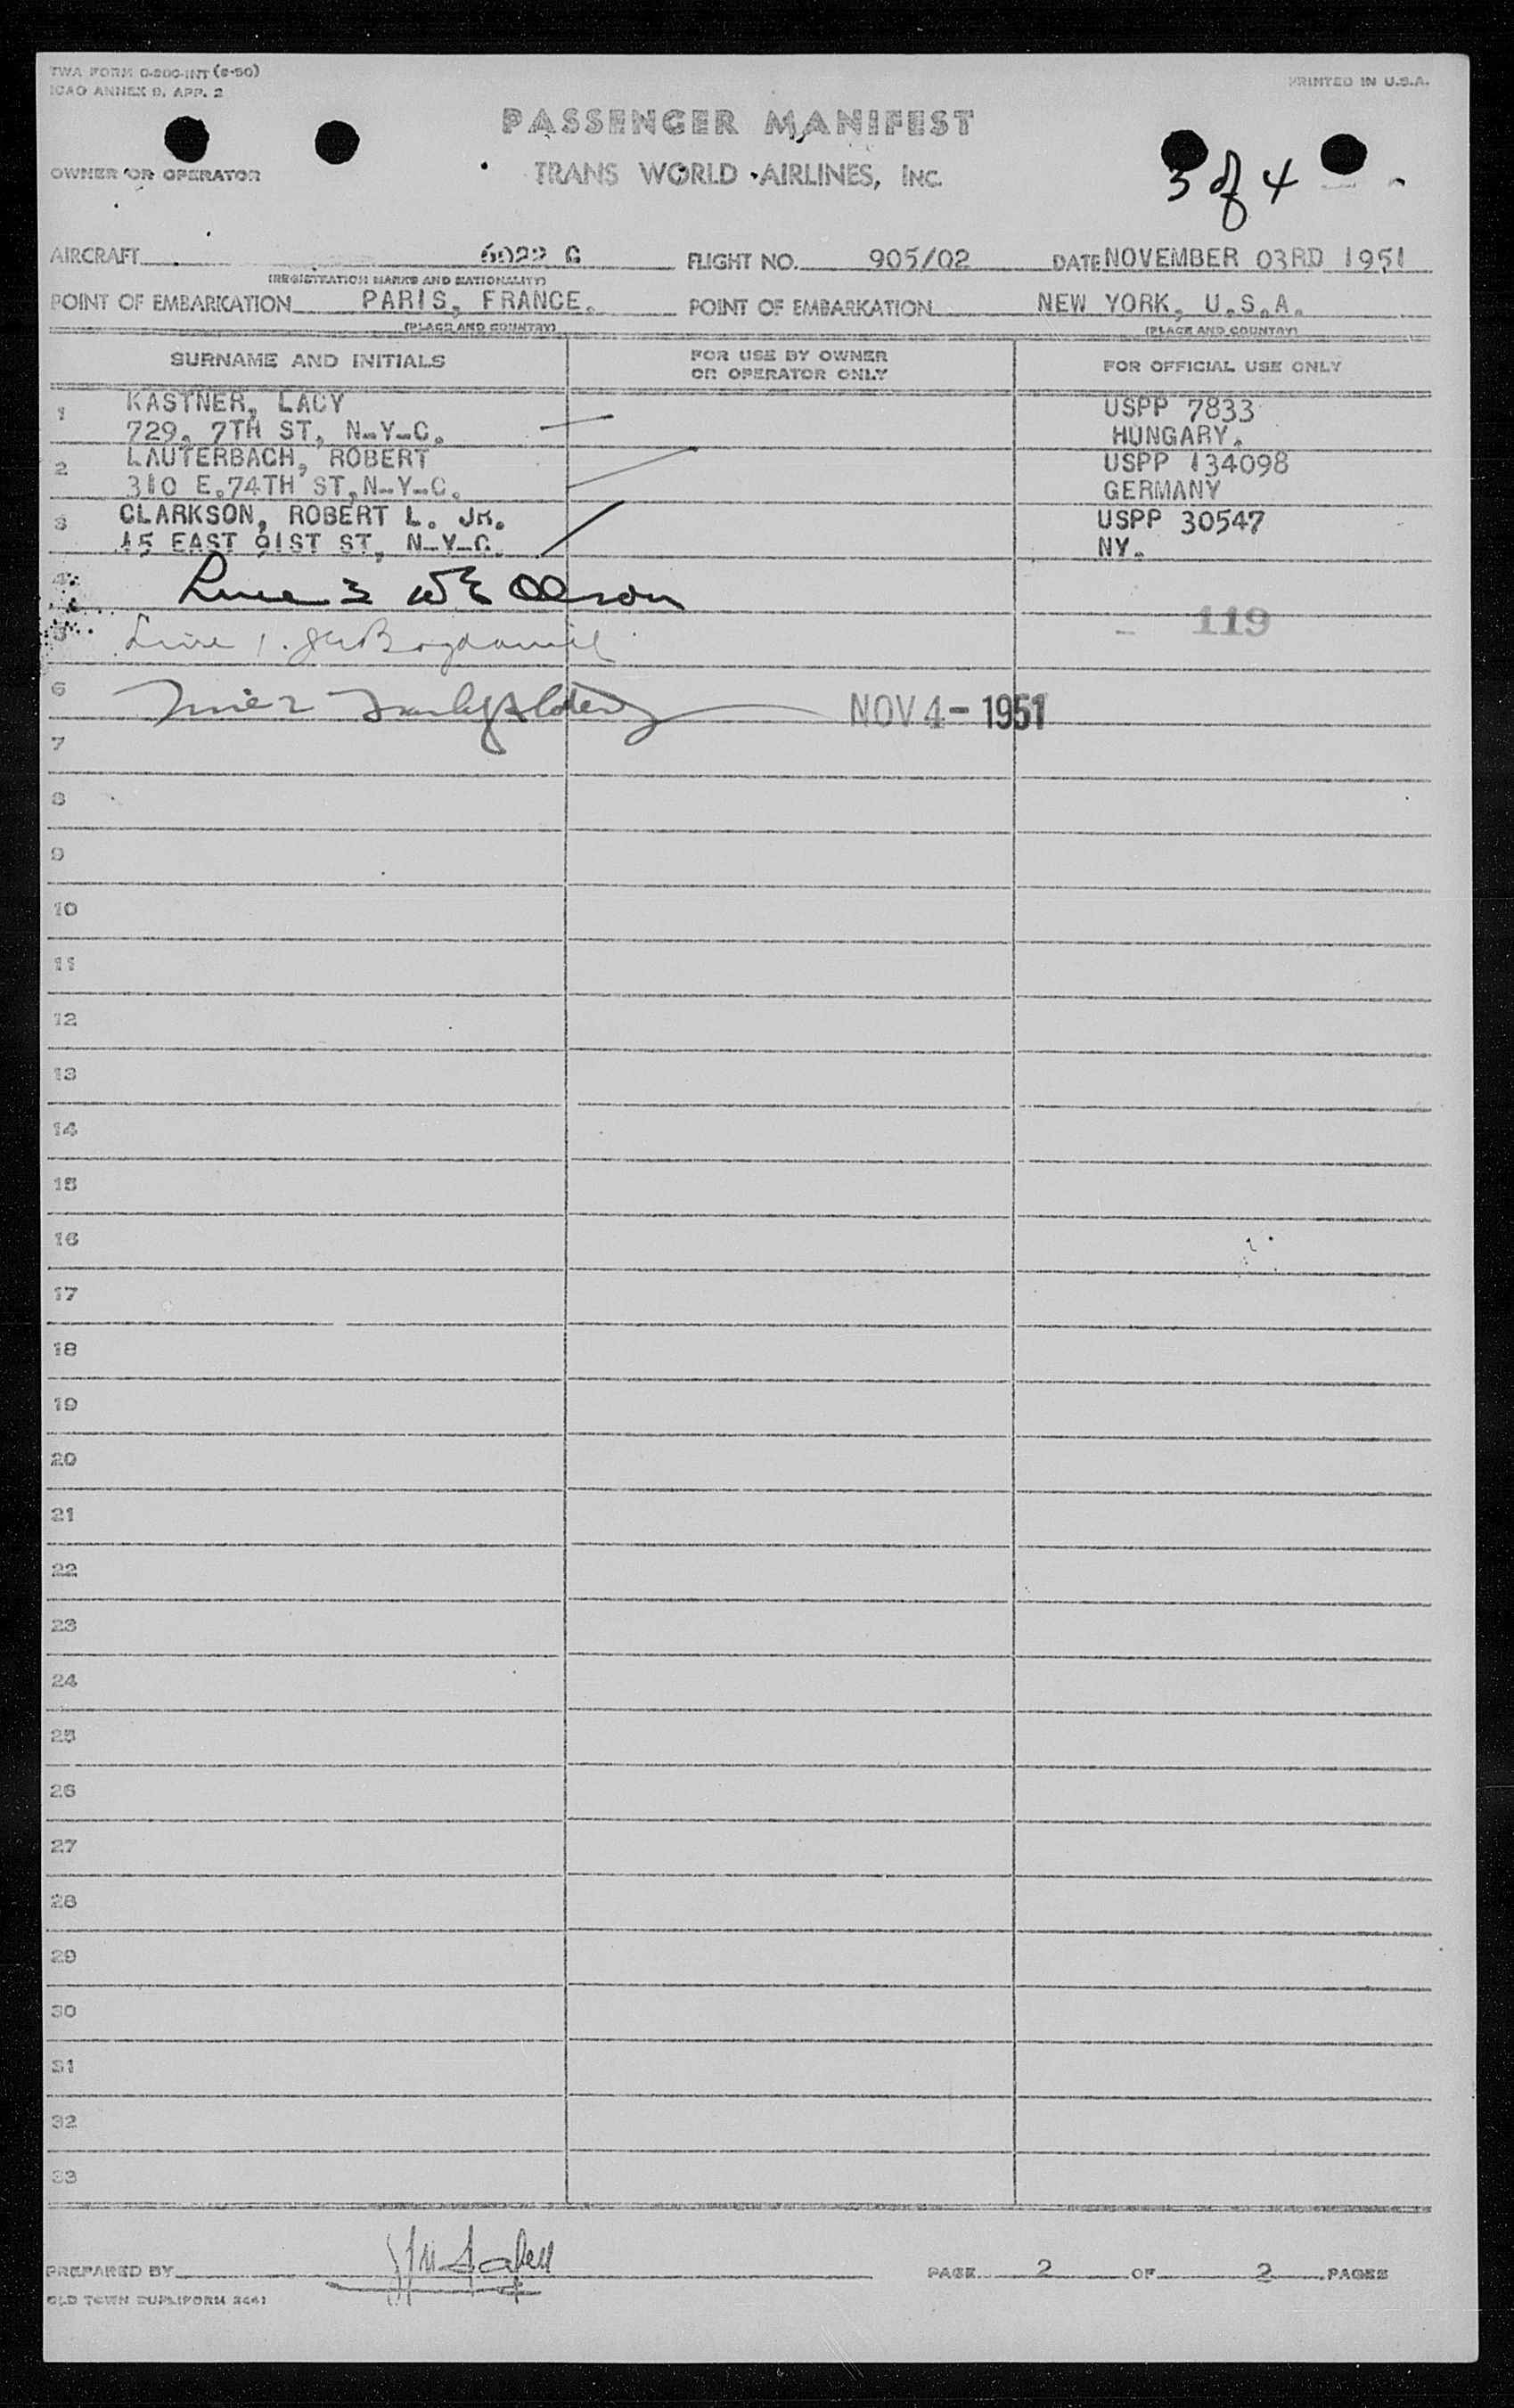 TWA FORM O-200-INT (6-50)
ICAO ANNEX 9, APP. 2
PRINTED IN U.S.A.
PASSENGER MANIFEST
OWNER OR OPERATOR TRANS WORLD AIRLINES, INC.
3 of 4
AIRCRAFT 6022 C FLIGHT NO. 905/02 DATE NOVEMBER 03RD 1951
(REGISTRATION MARKS AND NATIONALITY)
POINT OF EMBARKATION PARIS, FRANCE. POINT OF EMBARKATION NEW YORK, U.S.A.
(PLACE AND COUNTRY) (PLACE AND COUNTRY)
SURNAME AND INITIALS FOR USE BY OWNER OR OPERATOR ONLY FOR OFFICIAL USE ONLY
1 KASTNER, LACY USPP 7833
729, 7TH ST, N-Y-C. HUNGARY.
2 LAUTERBACH, ROBERT USPP 134098
310 E.74TH ST,N-Y-C. GERMANY
3 CLARKSON, ROBERT L. JR. USPP 30547
15 EAST 91ST ST, N-Y-C. NY.
4 Line 3 Olson
5 Line 1. 119
6 Line 2 NOV 4- 1951
7
8
9
10
11
12
13
14
15
16
17
18
19
20
21
22
23
24
25
26
27
28
29
30
31
32
33
PREPARED BY PAGE 2 OF 2 PAGES
OLD TOWN DUPLIFORM 2441